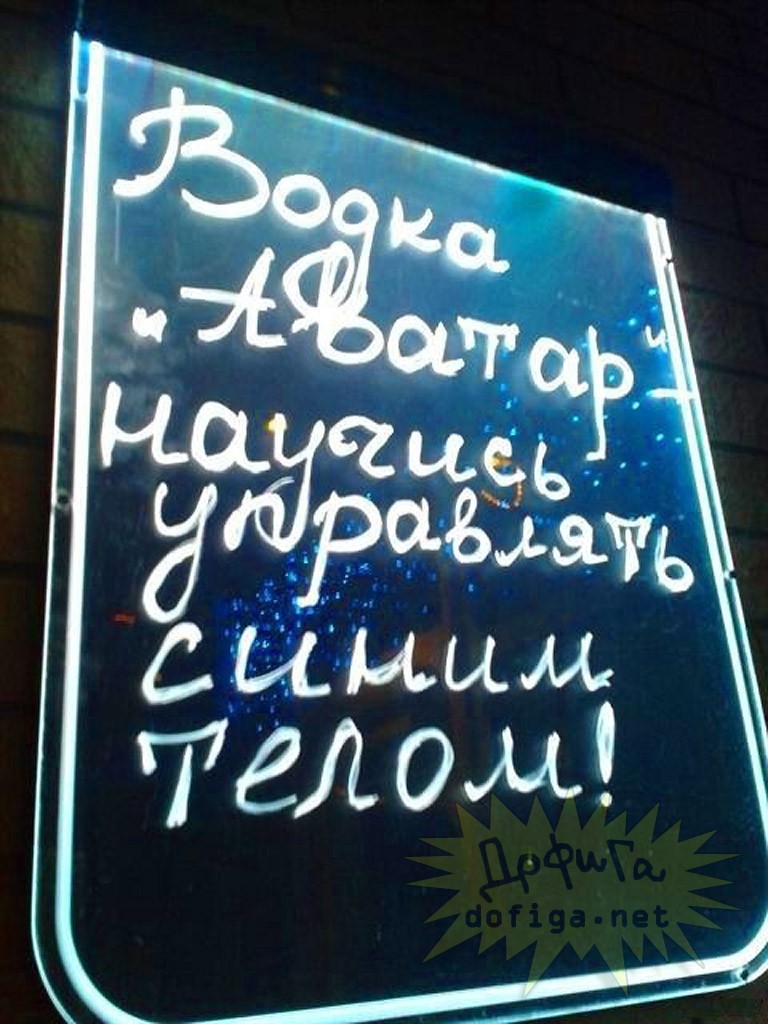 Водка
"Аватар" -
научись
управлять
синим
телом!
ДОФиГа
dofiga.net